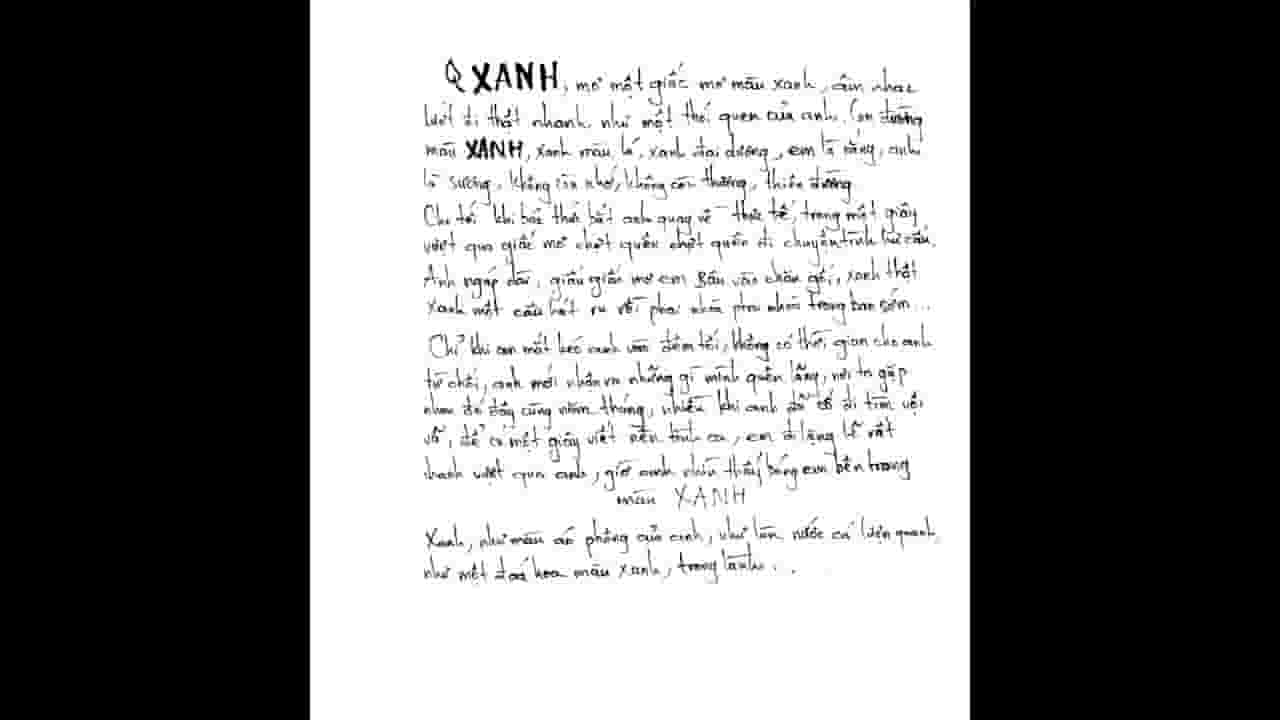 XANH, mơ một giấc mơ màu xanh, âm nhạc
lướt đi thật nhanh như một thói quen của anh. Con đường
màu XANH, xanh màu lá, xanh đại dương, em là nắng, anh
là sương, không còn nhớ, không còn thương, thiên đường
Cho tới khi báo thức bắt anh quay về thực tế, trong một giây
vượt qua giấc mơ chợt quên chợt quên đi chuyến trình hư cấu.
Anh ngáp dài, giấu giấc mơ em sâu vào chăn gối, xanh thật
xanh một câu hát ru rồi phai nhòa phai nhòa trong ban sớm...
Chỉ khi con mắt kéo anh vào đêm tối, không có thời gian cho anh
từ chối, anh mới nhận ra những gì mình quên lãng, nơi ta gặp
nhau đó đây cùng năm tháng, nhiều khi anh đã cố đi tìm vội
vã, để có một giây viết nên tình ca, em đi lặng lẽ rất
nhanh vượt qua anh, giờ anh nhìn thấy bóng em bên trong
màu XANH
Xanh, như màu áo phông của anh, như làn nước cá lượn quanh,
như một đoá hoa màu xanh, trong lành...